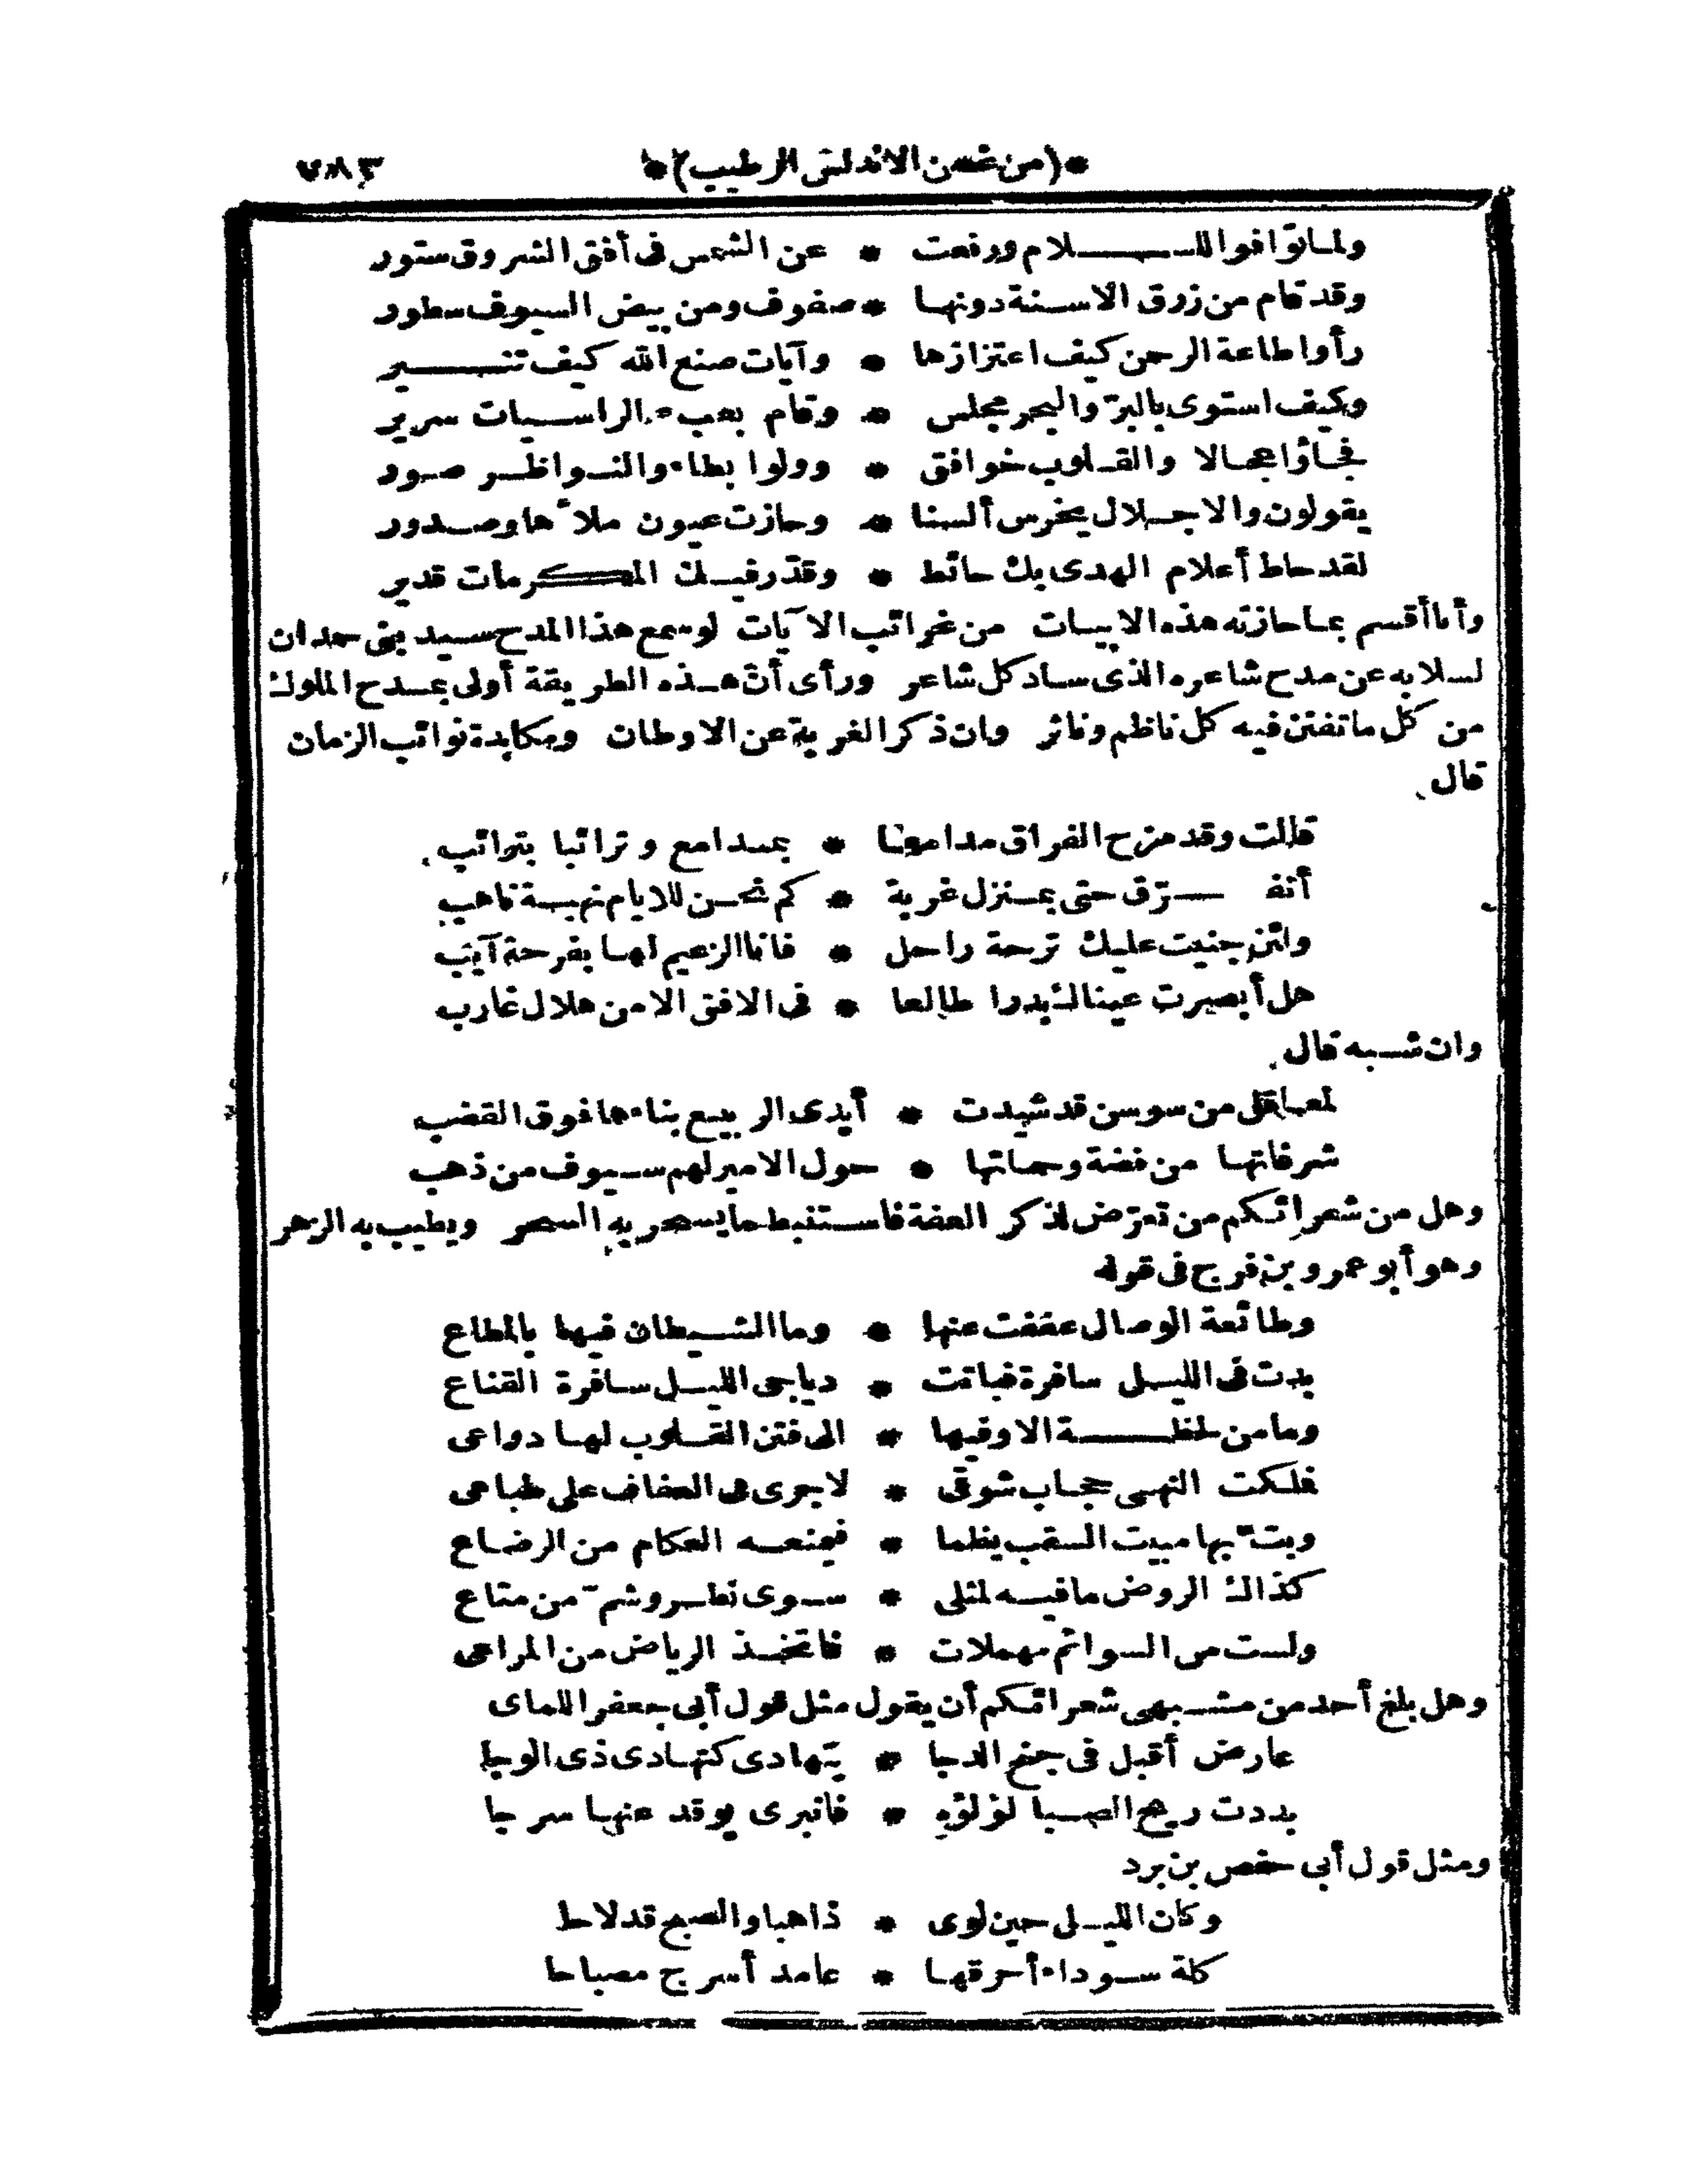 *(من غصن الاندلس الرطيب)* ٧٨٣
ولما توافوا للسلام ورفعت * عن الشمس فى أفق الشروق ستور
وقد قام من زرق الاسنة دونها * صفوف ومن بيض السيوف سطور
رأوا طاعة الرحمن كيف اعتزازها * وآيات صنع الله كيف تنير
وكيف استوى بالبرّ والبحر مجلس * وقام بعبء الراسيات سرير
فجاؤا عجالا والقلوب خوافق * وولوا بطاء والنواظر صور
يقولون والاجلال يخرس ألسنا * وحازت عيون ملأها وصدور
لقد حاط أعلام الهدى بك حائط * وقدّر فيك المكرمات قدير
وأنا أقسم بما حازته هذه الابيات من غرائب الآيات لو سمع هذا المدح سيد بنى حمدان
لسلا به عن مدح شاعره الذى ساد كل شاعر ورأى أنّ هذه الطريقة أولى بمدح الملوك
من كل ما تفتن فيه كل ناظم وناثر وان ذكر الغربة عن الاوطان ومكابدة نوائب الزمان
قال
قالت وقد مزح الفراق مدامعا * بمدامع وترائبا بترائب
أتفرّق حتى بمنزل غربة * كم نحن للايام نهبة ناهب
ولئن جنيت عليك ترحة راحل * فانا الزعيم لها بفرحة آيب
هل أبصرت عيناك بدرا طالعا * فى الافق الا من هلال غارب
وان شبه قال
لمعاقل من سوسن قد شيدت * أيدى الربيع بناءها فوق القضب
شرفاتها من فضة وحماتها * حول الامير لهم سيوف من ذهب
وهل من شعرائكم من تعرّض لذكر العفة فاستنبط ما يسحر به السحر ويطيب به الزهر
وهو أبو عمرو بن فرج فى قوله
وطائعة الوصال عففت عنها * وما الشيطان فيها بالمطاع
بدت فى الليل سافرة فباتت * دياجى الليل سافرة القناع
وما من لحظة الا وفيها * الى فتن القلوب لها دواعى
فملكت النهى حجاب شوقى * لاجرى فى العفاف على طباعى
وبتّ بها مبيت السقب يظما * فيمنعه العكام من الرضاع
كذاك الروض ما فيه لمثلى * سوى نظر وشمّ من متاع
ولست من السوائم مهملات * فاتخذ الرياض من المراعى
وهل بلغ أحد من مشبهى شعرائكم أن يقول مثل قول أبى جعفر اللماى
عارض أقبل فى جنح الدجا * يتهادى كتهادى ذى الوجا
بددت ريح الصبا لؤلؤه * فانبرى يوقد عنها سرجا
ومثل قول أبى حفص بن برد
وكان الليل حين لوى * ذاهبا والصبح قد لاحا
كلة سوداء أحرقها * عامد أسرج مصباحا